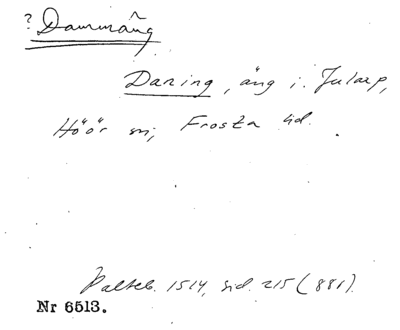 ? Dammäng
Daning, äng i Jularp,
Höör sn, Frosta hd.
Palteb. 1514, sid. 215 (881).
Nr 6513.